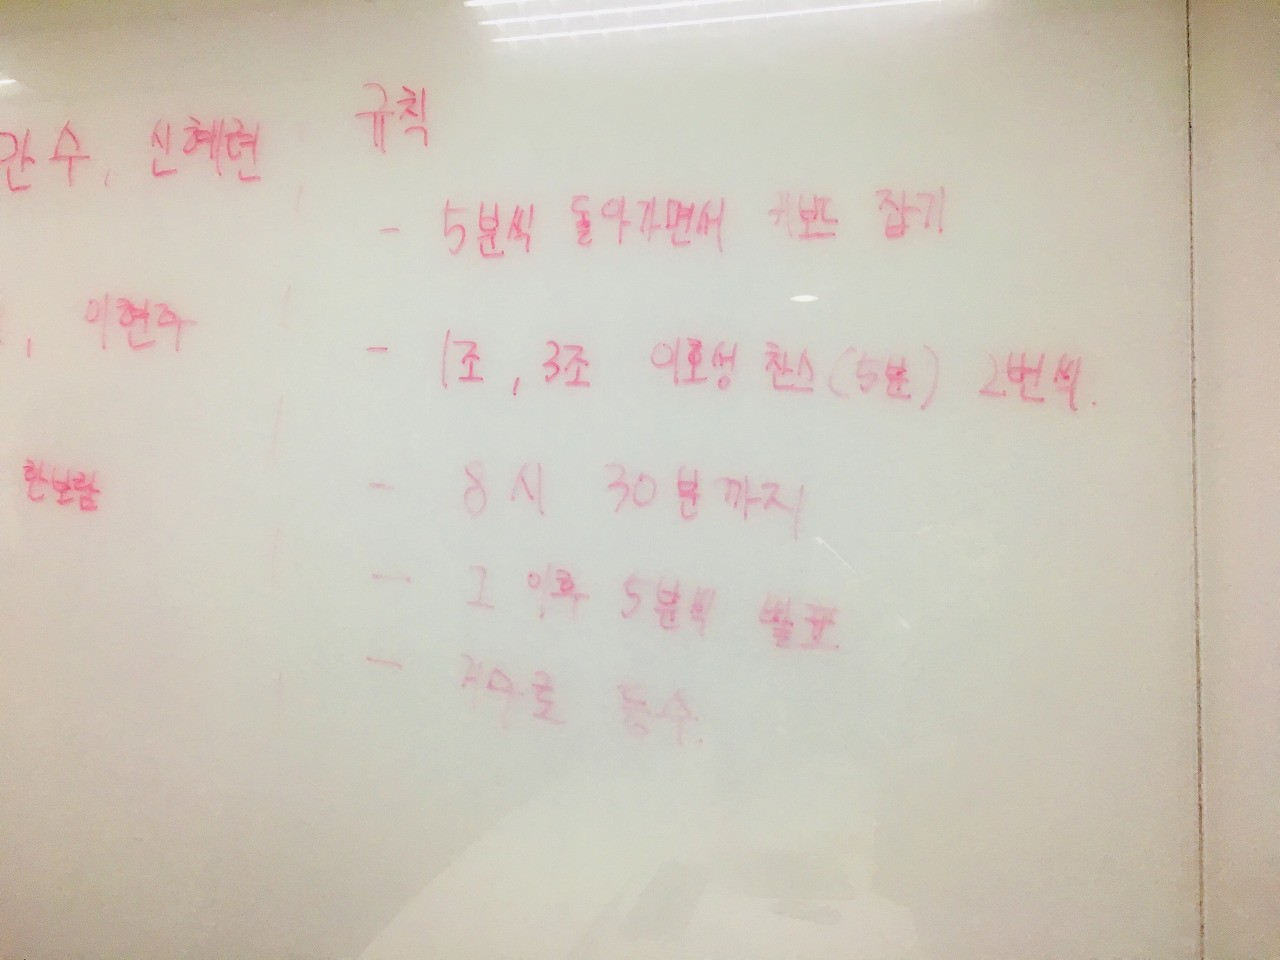 수, 신혜현
, 이현주
한보람
규칙
- 5분씩 돌아가면서 키보드 잡기
- 1조, 3조 이호성 찬스(5분) 2번씩.
- 8시 30분까지
- 그 이후 5분씩 발표.
- 거수로